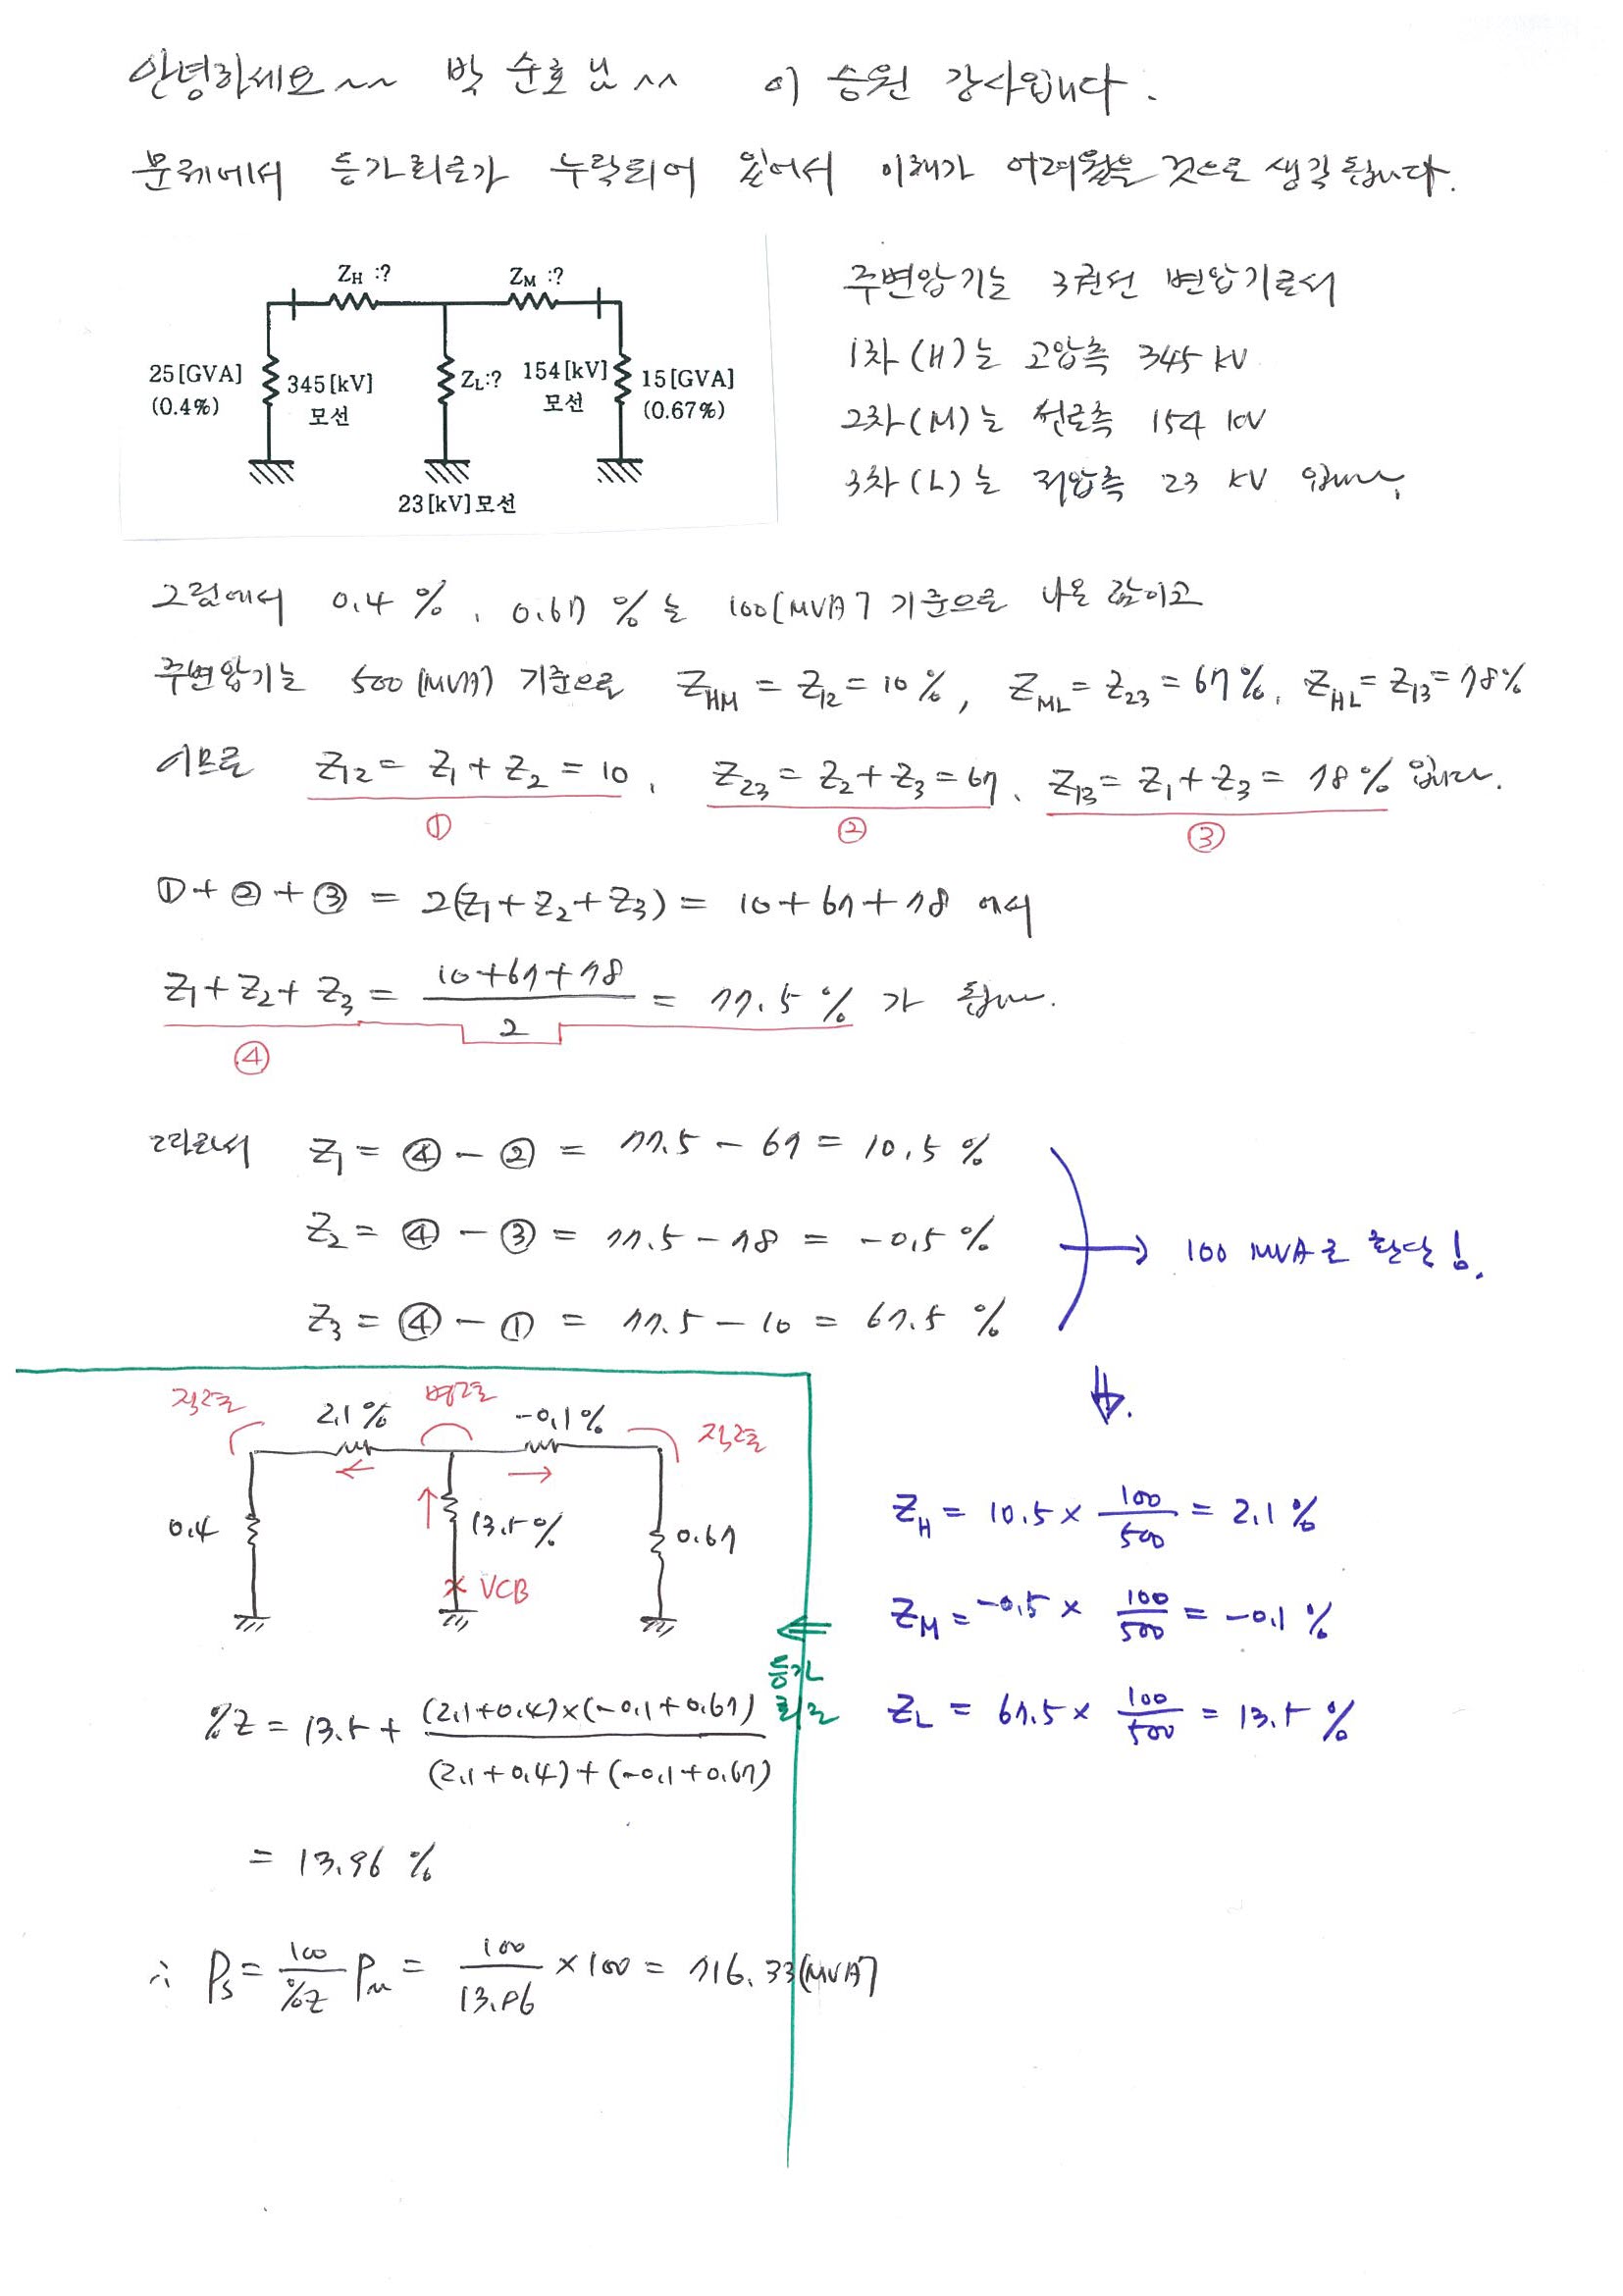 안녕하세요~~ 박 순호 님^^ 이 승원 강사입니다.
문제에서 등가회로가 누락되어 있어서 이해가 어려웠을 것으로 생각됩니다.
Z_H :? Z_M :?
25[GVA] (0.4%)
345[kV] 모선
Z_L:?
154[kV] 모선
15[GVA] (0.67%)
23[kV]모선
주변압기는 3권선 변압기로서
1차(H)는 고압측 345 kV
2차(M)는 선로측 154 kV
3차(L)는 저압측 23 kV 입니다.
그림에서 0.4 %, 0.67 %는 100[MVA] 기준으로 나온 값이고
주변압기는 500[MVA] 기준으로 Z_HM = Z_12 = 10 %, Z_ML = Z_23 = 67 %, Z_HL = Z_13 = 78 %
이므로 Z_12 = Z_1 + Z_2 = 10, Z_23 = Z_2 + Z_3 = 67, Z_13 = Z_1 + Z_3 = 78 % 입니다.
① ② ③
① + ② + ③ = 2(Z_1 + Z_2 + Z_3) = 10 + 67 + 78 에서
Z_1 + Z_2 + Z_3 = (10+67+78)/2 = 77.5 % 가 됩니다.
④
따라서 Z_1 = ④ - ② = 77.5 - 67 = 10.5 %
Z_2 = ④ - ③ = 77.5 - 78 = -0.5 %
Z_3 = ④ - ① = 77.5 - 10 = 67.5 %
→ 100 MVA로 환산!
직렬 병렬 직렬
2.1% -0.1%
0.4 13.5% 0.67
VCB
등가
회로
Z_H = 10.5 × 100/500 = 2.1 %
Z_M = -0.5 × 100/500 = -0.1 %
Z_L = 67.5 × 100/500 = 13.5 %
%Z = 13.5 + (2.1+0.4)×(-0.1+0.67)/(2.1+0.4)+(-0.1+0.67)
= 13.96 %
∴ P_s = 100/%Z P_n = 100/13.96 × 100 = 716.33[MVA]